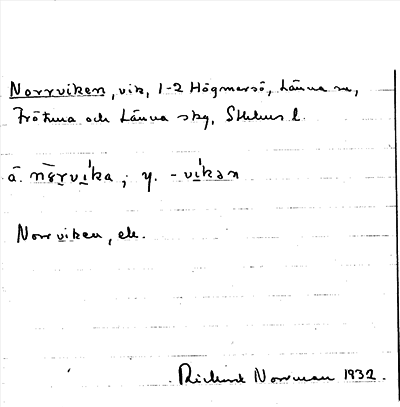 Norrviken, vik, 1-2 Högmarsö, Länna sn,
Frötuna och Länna skg, Sthlms l.
ä. nɷrvi̍ka; y. -vi̍kən
Norrviken, ek.
Rickard Norrman 1932.